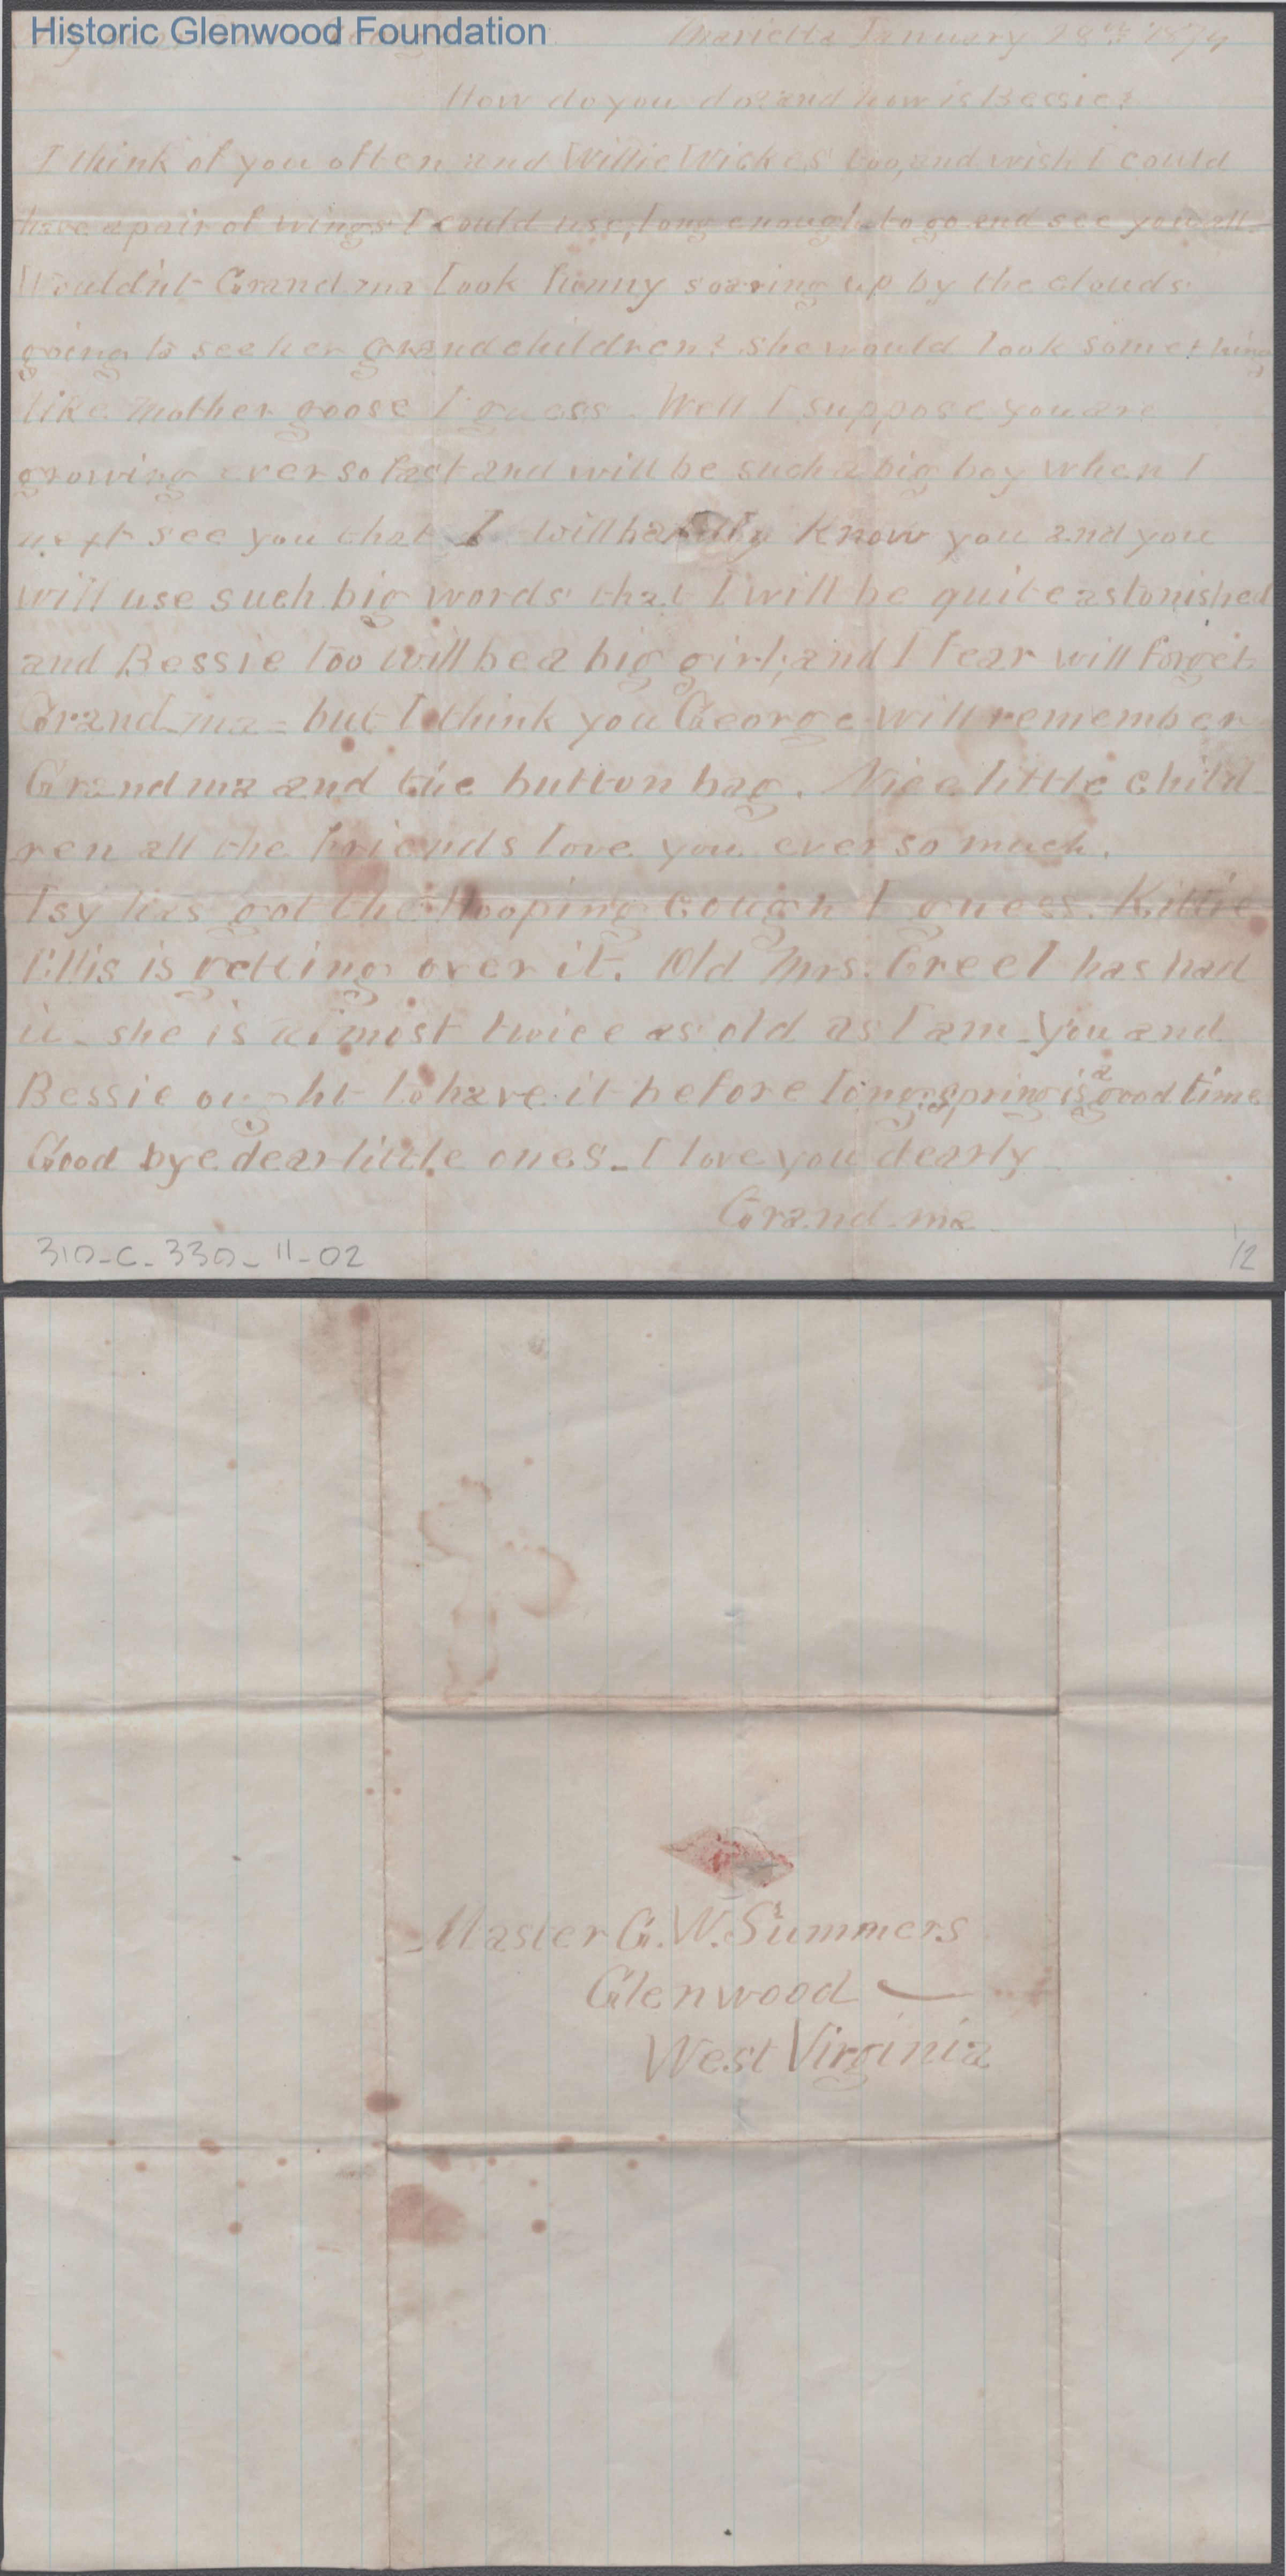 Historic Glenwood Foundation
Marietta January 28th 1879
How do you do? and how is Bessie?
I think of you often and Willie Wickes too, and wish I could
have a pair of wings I could use, long enough to go and see you all.
Wouldn't Grand ma look funny soaring up by the clouds
going to see her grandchildren? she would look something
like Mother goose I guess. Well I suppose you are
growing ever so fast and will be such a big boy when I
next see you that I will hardly know you and you
will use such big words that I will be quite astonished
and Bessie too will be a big girl, and I fear will forget
Grand-ma - but I think you George will remember
Grand ma and the button bag. Nice little child-
ren all the friends love you ever so much.
has got the Hooping cough I guess. Kittie
Ellis is getting over it. Old Mrs. Creel has had
it - she is almost twice as old as I am - You and
Bessie ought to have it before long, spring is a good time
Good bye dear little ones - I love you dearly
Grand-ma
310-C-330-11-02
12
Master G. W. Summers
Glenwood
West Virginia